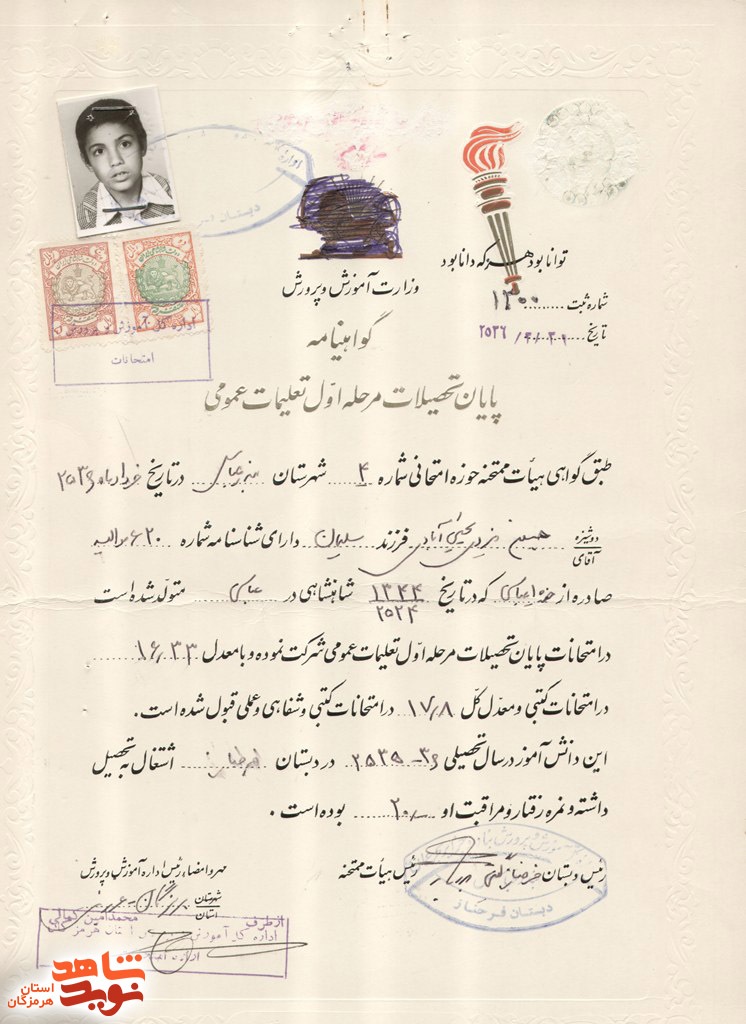 توانا بود هر که دانا بود
وزارت آموزش و پرورش
شماره ثبت ۱۳۰۰
تاریخ ۲۵۳۶
گواهینامه
پایان تحصیلات مرحله اول تعلیمات عمومی
اداره کل آموزش و پرورش
امتحانات
طبق گواهی هیأت ممتحنه حوزه امتحانی شماره ۴ شهرستان بندرعباس در تاریخ خرداد ماه ۲۵۳۶
دوشیزه
آقای
حسین یزدی یحیی آبادی فرزند سلیمان دارای شناسنامه شماره ۶۲۰
صادره از که در تاریخ ۱۳۴۴ شاهنشاهی در متولد شده است
۲۵۲۴
در امتحانات پایان تحصیلات مرحله اول تعلیمات عمومی شرکت نموده و با معدل ۱۶/۳۳
در امتحانات کتبی و معدل کل ۱۷/۸ در امتحانات کتبی و شفاهی و عملی قبول شده است.
این دانش آموز در سال تحصیلی ۳۶-۲۵۳۵ در دبستان اشتغال به تحصیل
داشته و نمره رفتار و مراقبت او ۲۰ بوده است.
رئیس دبستان رئیس هیأت ممتحنه مهر و امضاء رئیس اداره آموزش و پرورش
شهرستان
استان
دبستان فرحناز
از طرف محمدامین کمالی
اداره کل آموزش
شاهد
نوید
استان
هرمزگان